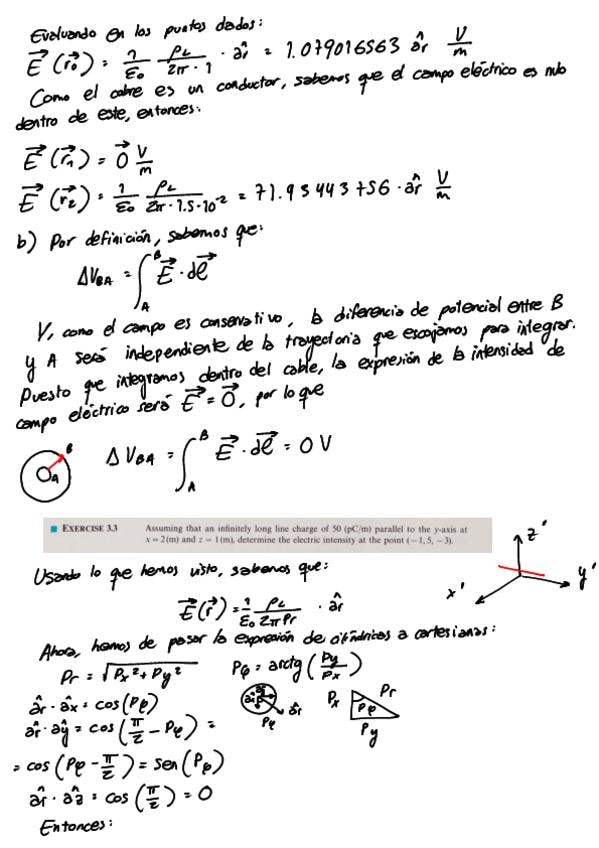 Evaluando en los puntos dados:
E⃗(r⃗₀) = 1/ε₀ ρL/(2π·1) · âr = 1.079016563 âr V/m
Como el cobre es un conductor, sabemos que el campo eléctrico es nulo
dentro de este, entonces:
E⃗(r⃗₁) = 0⃗ V/m
E⃗(r⃗₂) = 1/ε₀ ρL/(2π·1.5·10⁻²) = 71.93443756 · âr V/m
b) Por definición, sabemos que:
ΔV_BA = ∫_A^B E⃗·dℓ⃗
Y, como el campo es conservativo, la diferencia de potencial entre B
y A será independiente de la trayectoria que escojamos para integrar.
Puesto que integramos dentro del cable, la expresión de la intensidad de
campo eléctrico será E⃗ = 0⃗, por lo que
B
A
ΔV_BA = ∫_A^B E⃗·dℓ⃗ = 0 V
■ EXERCISE 3.3 Assuming that an infinitely long line charge of 50 (pC/m) parallel to the y-axis at
x = 2(m) and z = 1(m), determine the electric intensity at the point (−1, 5, −3).
z'
y'
x'
Usando lo que hemos visto, sabemos que:
E⃗(r⃗) = 1/ε₀ ρL/(2πPr) · âr
Ahora, hemos de pasar la expresión de cilíndricos a cartesianas:
Pr = √(Px² + Py²) Pφ = arctg(Py/Px)
âr · âx = cos(Pφ)
âr · ây = cos(π/2 − Pφ) =
= cos(Pφ − π/2) = sen(Pφ)
âr · âz = cos(π/2) = 0
âr
Pφ
Px
Pr
Pφ
Py
Entonces: